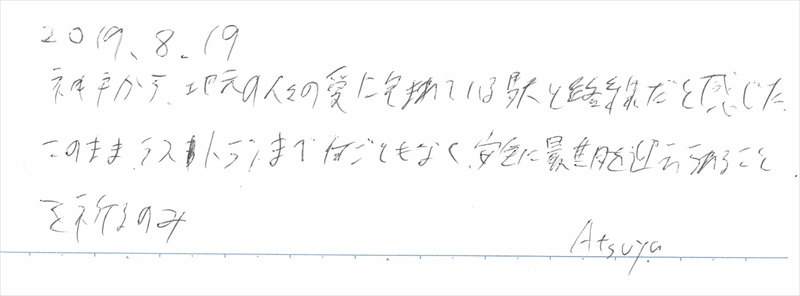 2019.8.19
神戸から。地元の人々の愛に包まれている駅と路線だと感じた。
このままラストランまで何ごともなく、安全に最期を迎えられること
を祈るのみ
Atsuya